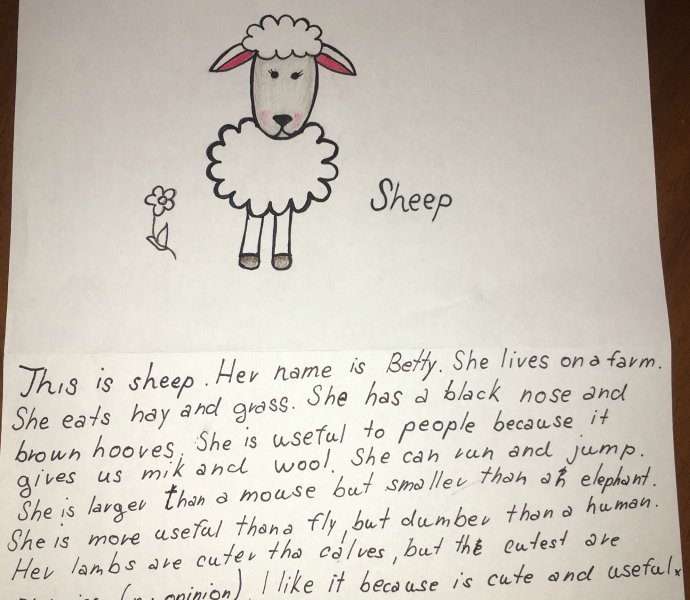 Sheep
This is sheep. Her name is Betty. She lives on a farm.
She eats hay and grass. She has a black nose and
brown hooves. She is useful to people because it
gives us mik and wool. She can run and jump.
She is larger than a mouse but smaller than an elephant.
She is more useful than a fly, but dumber than a human.
Her lambs are cuter tha calves, but the cutest are
opinion). I like it because is cute and useful.